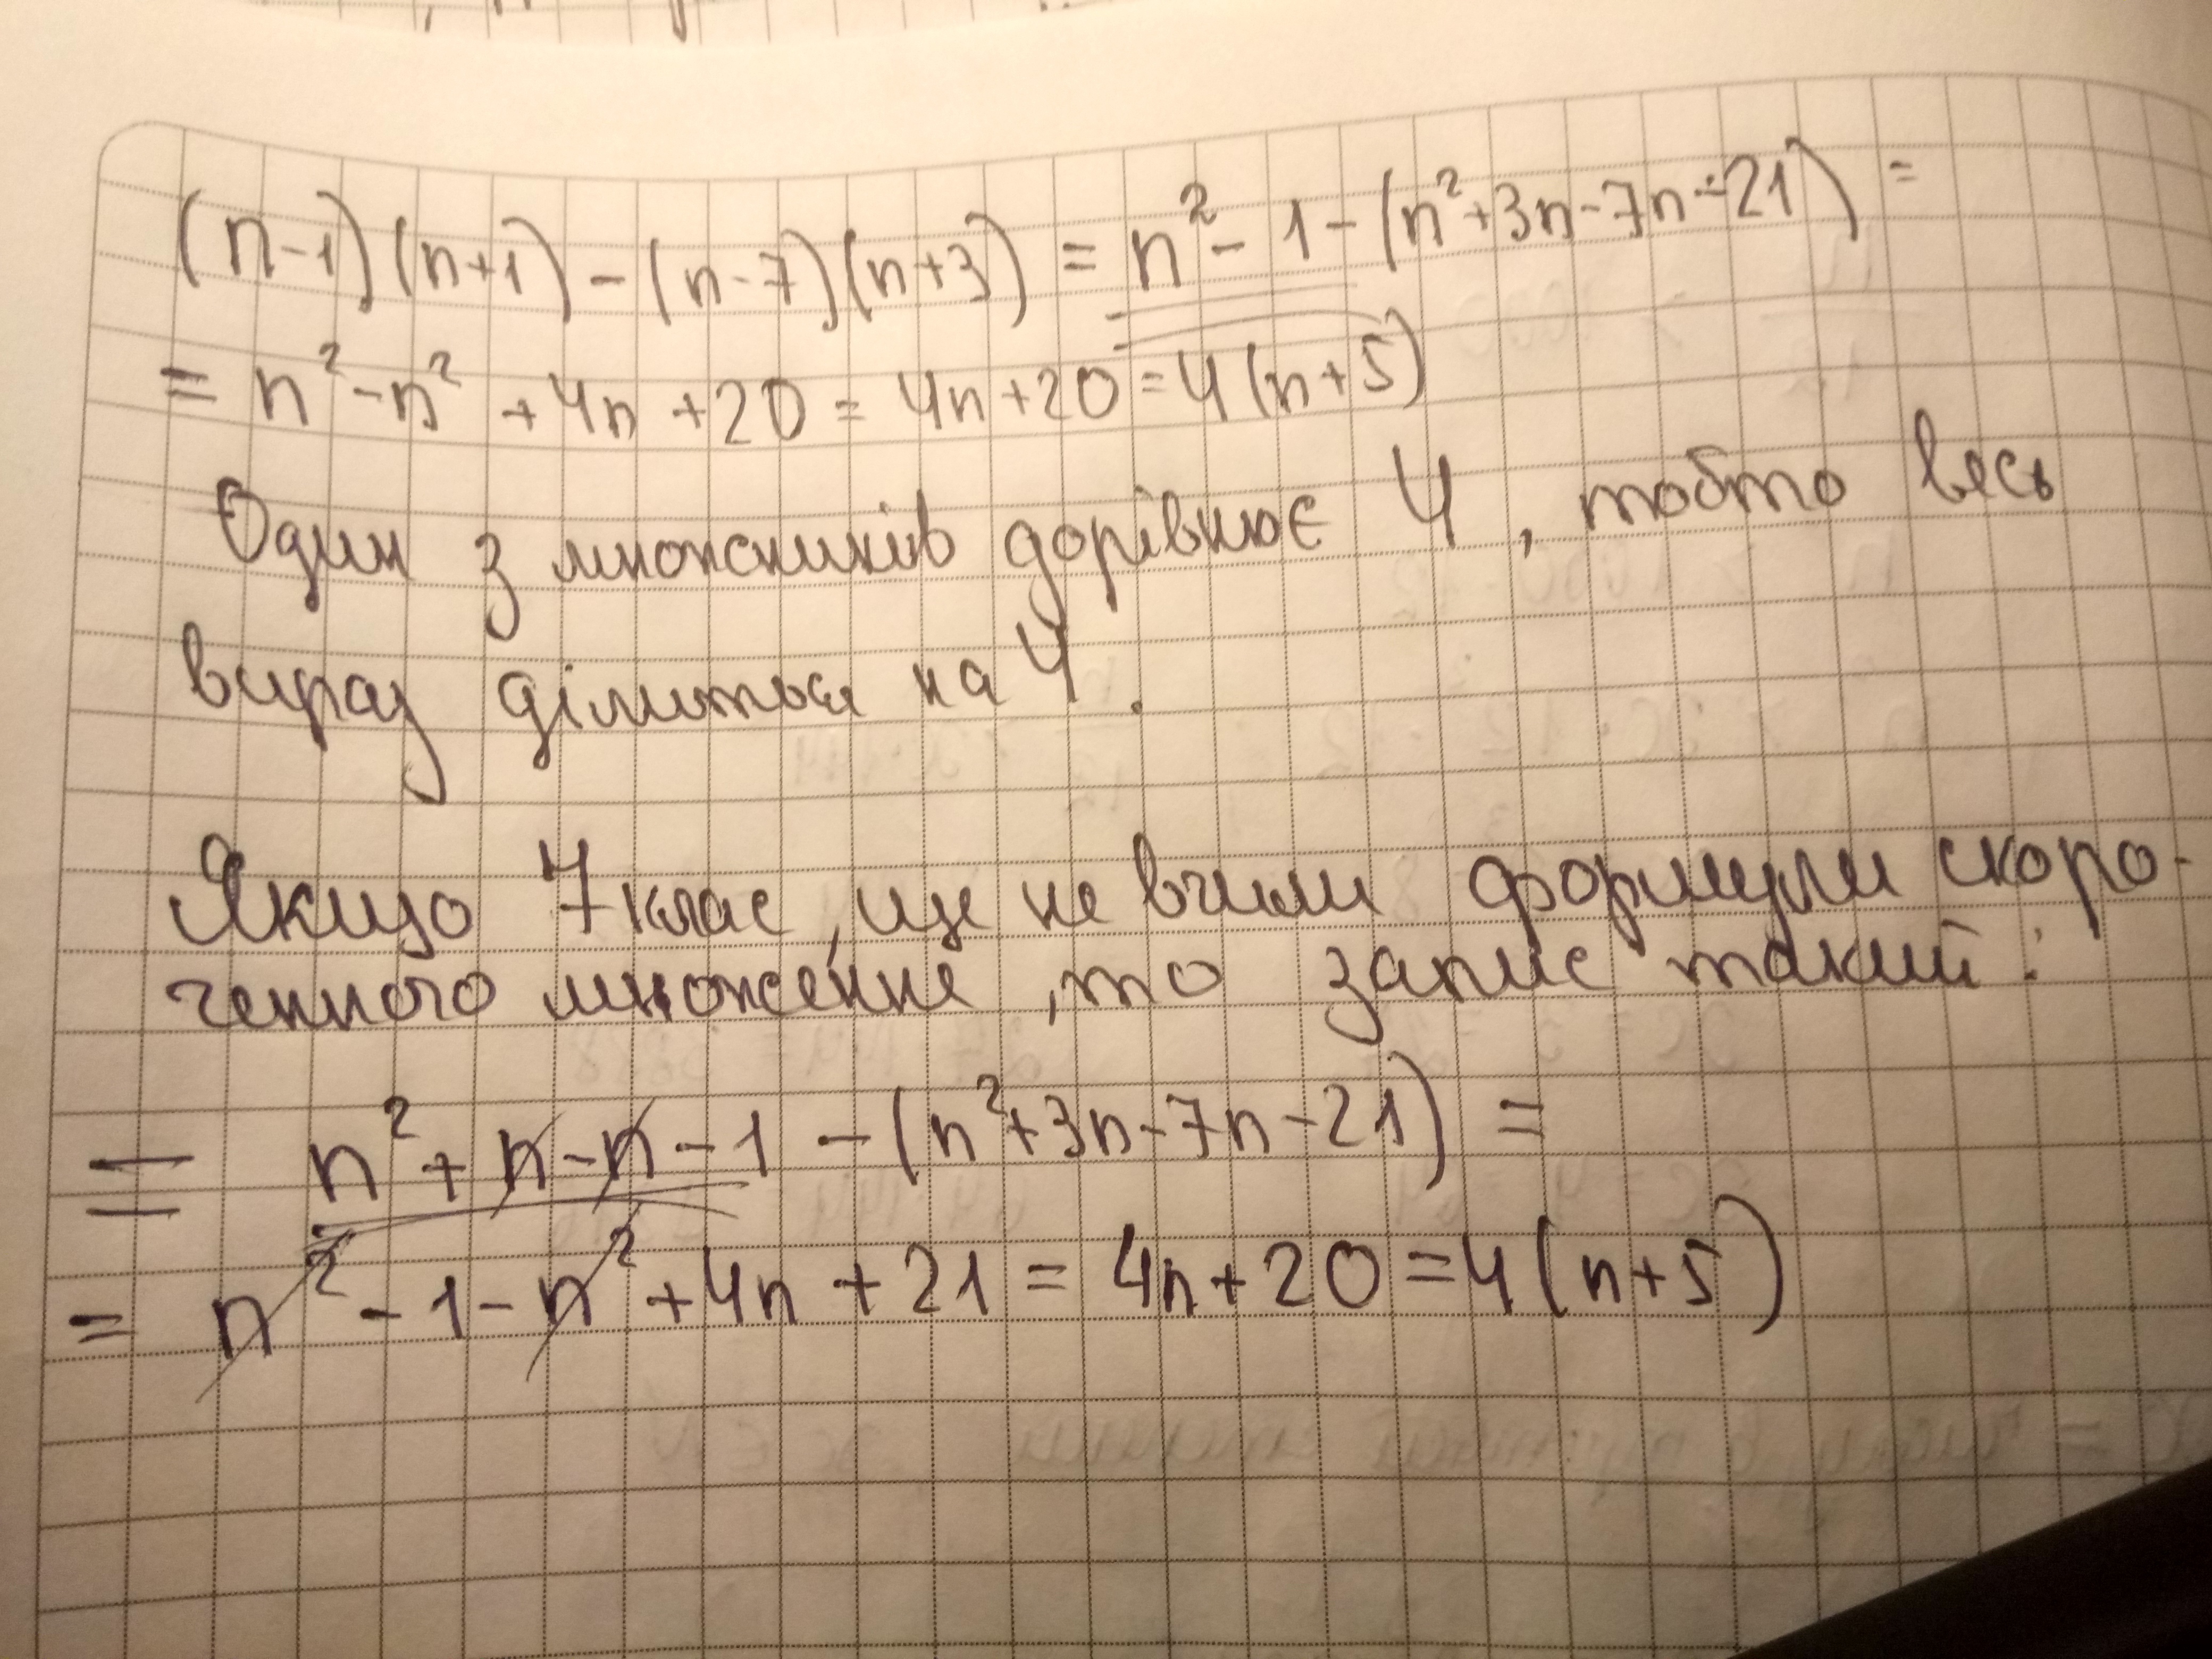 (n-1)(n+1)-(n-7)(n+3) = n²-1-(n²+3n-7n-21) =
= n²-n²+4n+20 = 4n+20 = 4(n+5)
Один з множників дорівнює 4, тобто весь
вираз ділиться на 4.
Якщо 7 клас, ще не вчили формули скоро-
ченного множення, то запис такий:
= n²+n-n-1-(n²+3n-7n-21) =
= n²-1-n²+4n+21 = 4n+20 = 4(n+5)